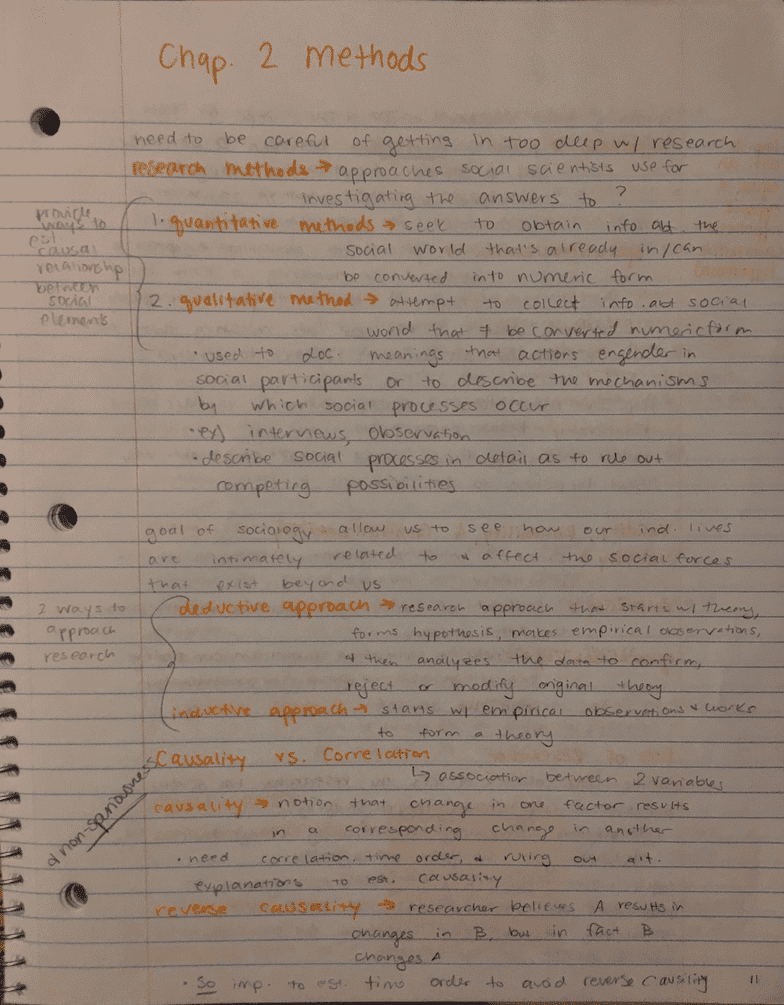 Chap. 2 Methods
need to be careful of getting in too deep w/ research
research methods → approaches social scientists use for
investigating the answers to ?
provide
ways to
est
causal
relationship
between
social
elements
1. quantitative methods → seek to obtain info abt the
social world that's already in/can
be converted into numeric form
2. qualitative method → attempt to collect info abt social
world that ≠ be converted numeric form
• used to doc. meanings that actions engender in
social participants or to describe the mechanisms
by which social processes occur
• ex) interviews, observation
• describe social processes in detail as to rule out
competing possibilities
goal of sociology: allow us to see how our ind. lives
are intimately related to & affect the social forces
that exist beyond us
2 ways to
approach
research
deductive approach → research approach that starts w/ theory,
forms hypothesis, makes empirical observations,
& then analyzes the data to confirm,
reject or modify original theory
inductive approach → starts w/ empirical observations & works
to form a theory
Causality vs. Correlation
↳ association between 2 variables
causality → notion that change in one factor results
in a corresponding change in another
• need correlation, time order, & ruling out alt.
explanations to est. causality
& non-spuriousness
reverse causality → researcher believes A results in
changes in B, but in fact B
changes A
• So imp. to est. time order to avoid reverse causility
11